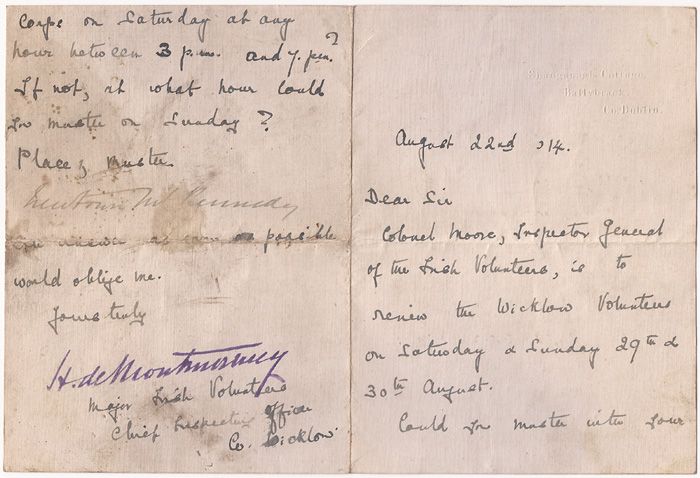 Shanganagh Cottage,
Ballybrack,
Co. Dublin.
August 22nd 14.
Dear Sir
Colonel Moore, Inspector General
of the Irish Volunteers, is to
review the Wicklow Volunteers
on Saturday & Sunday 29th &
30th August.
Could you muster with your
corps on Saturday at any
hour between 3 p.m. and 7. p.m.?
If not, at what hour could
you muster on Sunday?
Place of muster
Newtown Mt Kennedy
answer as soon as possible
would oblige me.
Yours truly
H. de Montmorency
Major Irish Volunteers
Chief Inspecting Officer
Co. Wicklow.